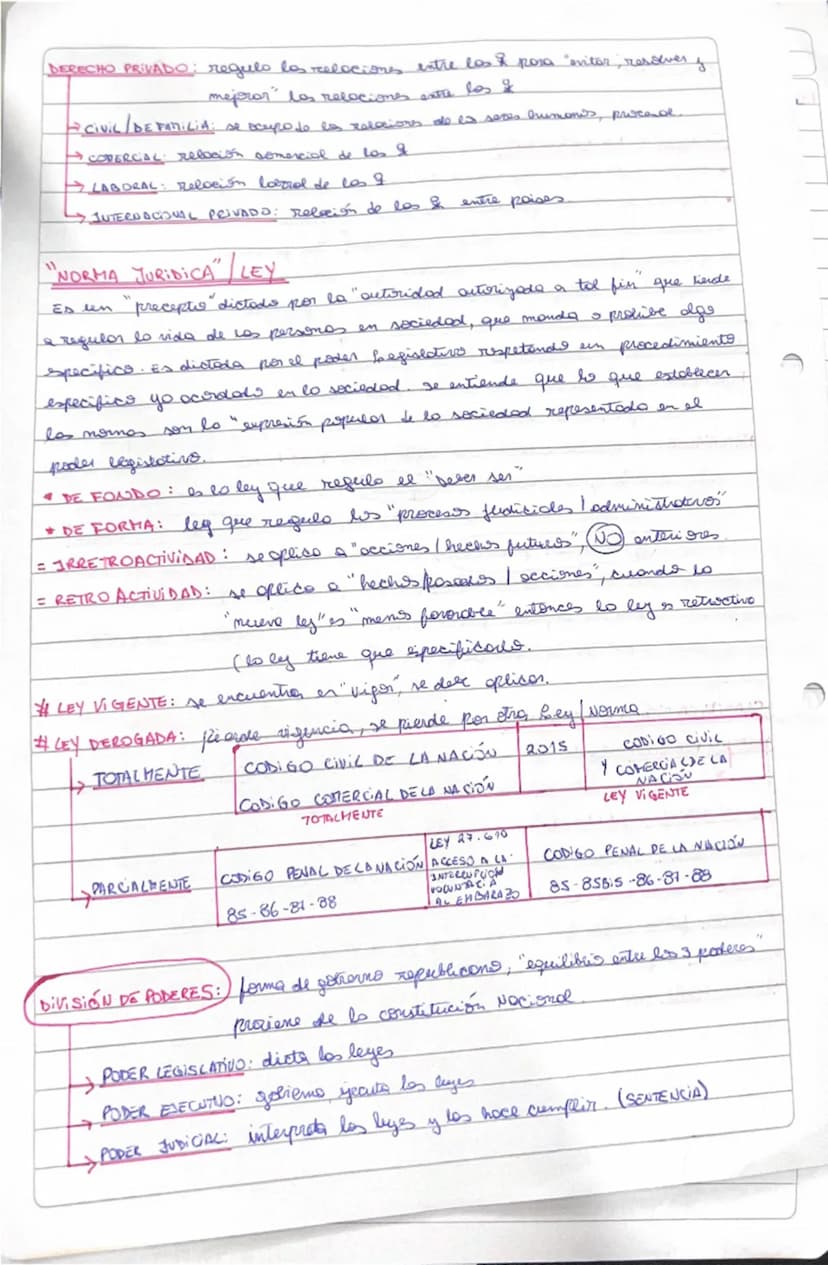 DERECHO PRIVADO: regula las relaciones entre las para "evitar, resolver y
mejorar" las relaciones entre las
→ CIVIL/DE FAMILIA: se ocupa de las relaciones de los seres humanos, procesal.
→ COMERCIAL: relación comercial de las
→ LABORAL: relación laboral de las
→ INTERNACIONAL PRIVADO: relación de las entre países
"NORMA JURIDICA" / LEY
Es un "precepto" dictado por la "autoridad autorizada a tal fin" que tiende
a regular la vida de las personas en sociedad, que manda o prohibe algo
especifico. Es dictada por el poder Legislativo respetando un procedimiento
especifico ya acordado en la sociedad. se entiende que lo que establecen
las normas son la "expresión popular de la sociedad representada en el
poder legislativo.
* DE FONDO: es la ley que regula el "Deber ser"
* DE FORMA: ley que regula los "procesos judiciales / administrativos"
= IRRETROACTIVIDAD: se aplica a "acciones / hechos futuros", NO anteriores.
= RETROACTIVIDAD: se aplica a "hechos pasados / acciones", cuando la
"nueva ley" es "menos favorable" entonces la ley es retroctiva
(la ley tiene que especificarlo.
# LEY VIGENTE: se encuentra en "vigor", se debe aplicar.
# LEY DEROGADA: pierde vigencia, se pierde por otra Ley / Norma
→ TOTALMENTE
CODIGO CIVIL DE LA NACIÓN
CODIGO COMERCIAL DE LA NACIÓN
2015
CODIGO CIVIL
Y COMERCIAL DE LA
NACIÓN
TOTALMENTE
LEY VIGENTE
→ PARCIALMENTE
CODIGO PENAL DE LA NACIÓN
85-86-87-88
LEY 27.610
ACCESO A LA
INTERRUPCION
VOLUNTARIA
AL EMBARAZO
CODIGO PENAL DE LA NACIÓN
85-85BIS-86-87-88
DIVISIÓN DE PODERES: forma de gobierno republicano, "equilibrio entre los 3 poderes"
proviene de la constitución Nacional
→ PODER LEGISLATIVO: dicta las leyes
→ PODER EJECUTIVO: gobierno, ejecuta las leyes
→ PODER JUDICIAL: interpreta las leyes y las hace cumplir. (SENTENCIA)